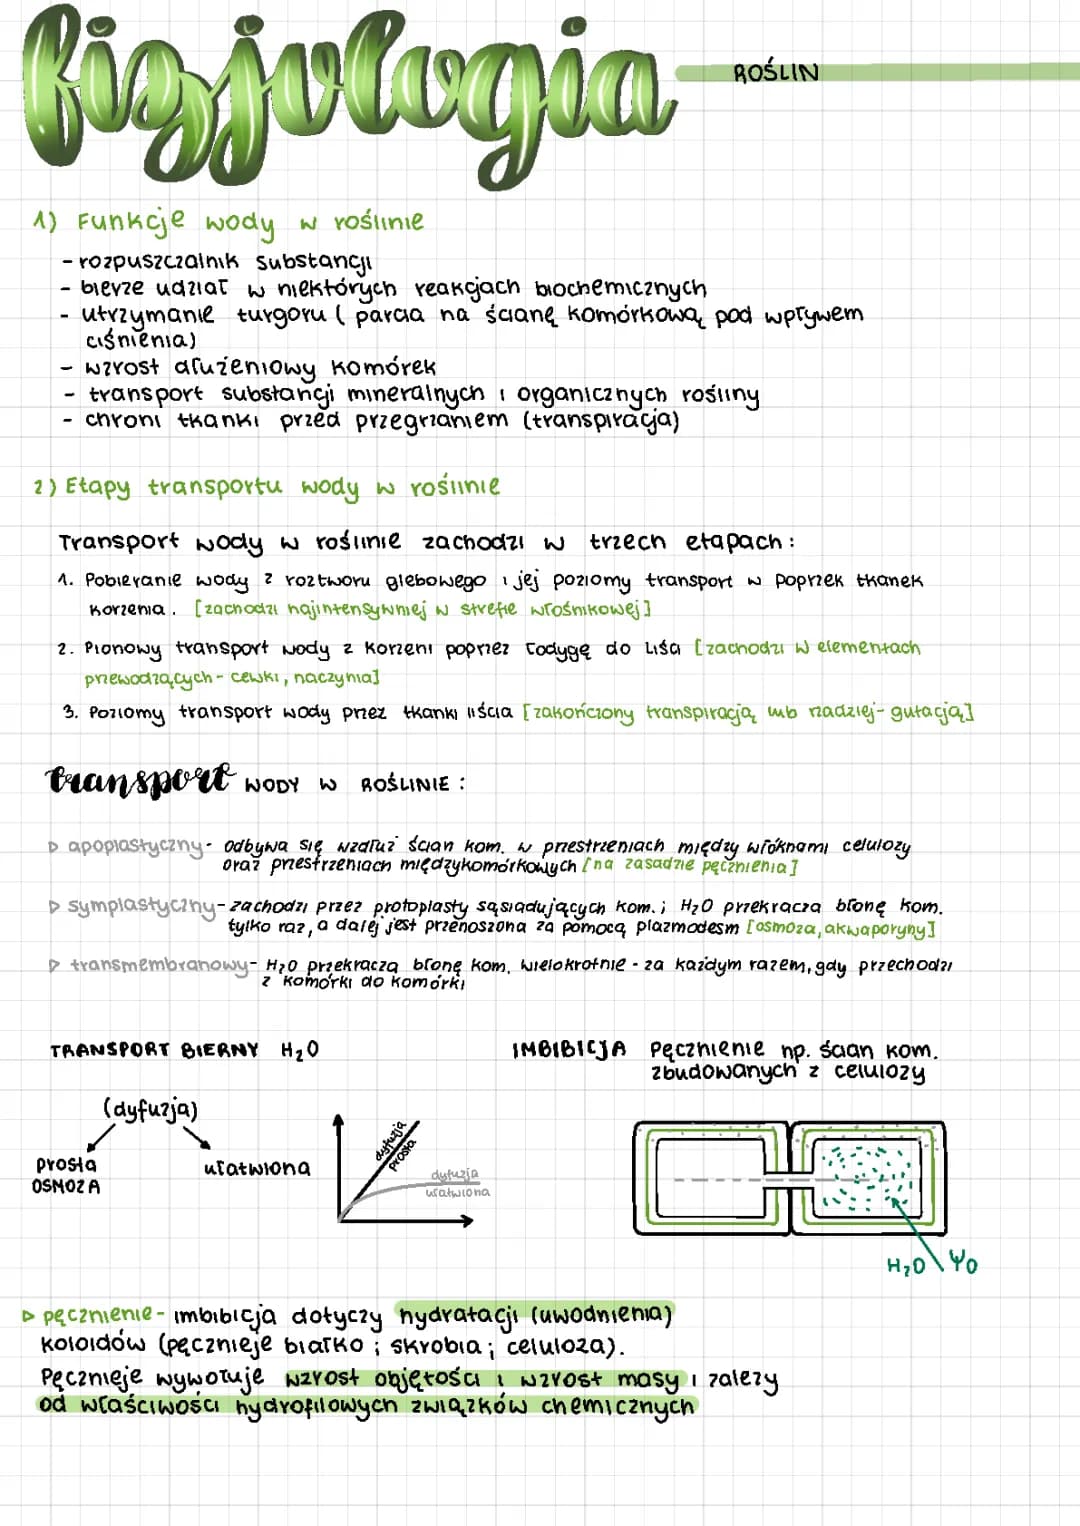 fizjologia ROŚLIN
1) Funkcje wody w roślinie
- rozpuszczalnik substancji
- bierze udział w niektórych reakcjach biochemicznych
- utrzymanie turgoru (parcia na ścianę komórkową pod wpływem
ciśnienia)
- wzrost dłużeniowy komórek
- transport substancji mineralnych i organicznych rośliny
- chroni tkanki przed przegrzaniem (transpiracja)
2) Etapy transportu wody w roślinie
Transport wody w roślinie zachodzi w trzech etapach:
1. Pobieranie wody z roztworu glebowego i jej poziomy transport w poprzek tkanek
korzenia. [zachodzi najintensywniej w strefie włośnikowej]
2. Pionowy transport wody z korzeni poprzez łodygę do liścia [zachodzi w elementach
przewodzących - cewki, naczynia]
3. Poziomy transport wody przez tkanki liścia [zakończony transpiracją lub rzadziej - gutacją]
transport WODY W ROŚLINIE:
▷ apoplastyczny - odbywa się wzdłuż ścian kom. w przestrzeniach między włóknami celulozy
oraz przestrzeniach międzykomórkowych [na zasadzie pęcznienia]
▷ symplastyczny - zachodzi przez protoplasty sąsiadujących kom.; H₂O przekracza błonę kom.
tylko raz, a dalej jest przenoszona za pomocą plazmodesm [osmoza, akwaporyny]
▷ transmembranowy - H₂O przekracza błonę kom. wielokrotnie - za każdym razem, gdy przechodzi
z komórki do komórki
TRANSPORT BIERNY H₂O
(dyfuzja)
prosta
OSMOZA
ułatwiona
dyfuzja
prosta
dyfuzja
ułatwiona
IMBIBICJA Pęcznienie np. ścian kom.
zbudowanych z celulozy
H₂O Ψ0
▷ pęcznienie - imbibicja dotyczy hydratacji (uwodnienia)
koloidów (pęcznieje białko; skrobia; celuloza).
Pęcznieje wywołuje wzrost objętości i wzrost masy i zależy
od właściwości hydrofilowych związków chemicznych